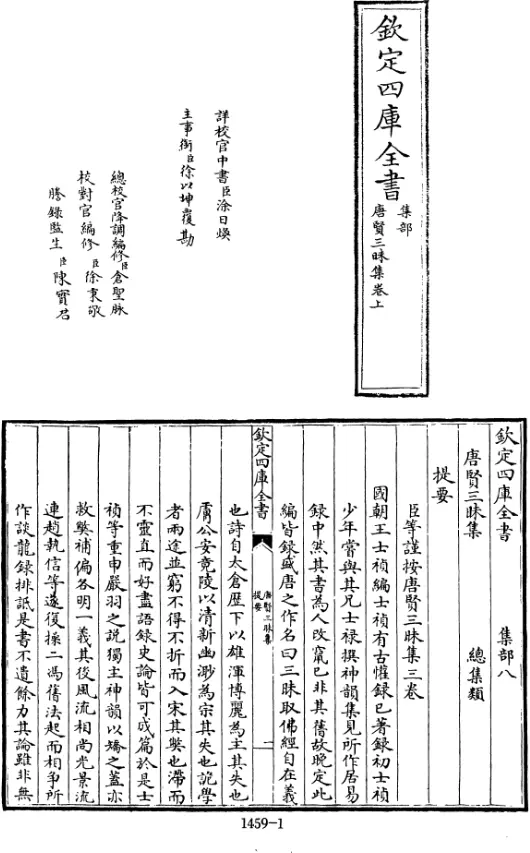 欽定四庫全書
集部
唐賢三昧集卷上
詳校官中書臣涂日煥
主事銜臣徐以坤覆勘
總校官降調編修臣倉聖脉
校對官編修臣徐秉敬
謄錄監生臣陳實名
欽定四庫全書
集部八
唐賢三昧集
總集類
提要
臣等謹按唐賢三昧集三卷
國朝王士禎編士禎有古懽録已著録初士禎
少年嘗與其兄士禄撰神韻集見所作居易
録中然其書為人改竄已非其舊故晚定此
編皆録盛唐之作名曰三昧取佛經自在義
欽定四庫全書
唐賢三昧集
提要
一
也詩自太倉歴下以雄渾博麗為主其失也
膚公安竟陵以清新幽渺為宗其失也詭學
者兩途並窮不得不折而入宋其弊也滯而
不靈直而好盡語録史論皆可成篇於是士
禎等重申嚴羽之説獨主神韻以矯之蓋亦
救弊補偏各明一義其後風流相尚光景流
連趙執信等遂復操二馮舊法起而相爭所
作談龍録排詆是書不遺餘力其論雖非無
1459-1